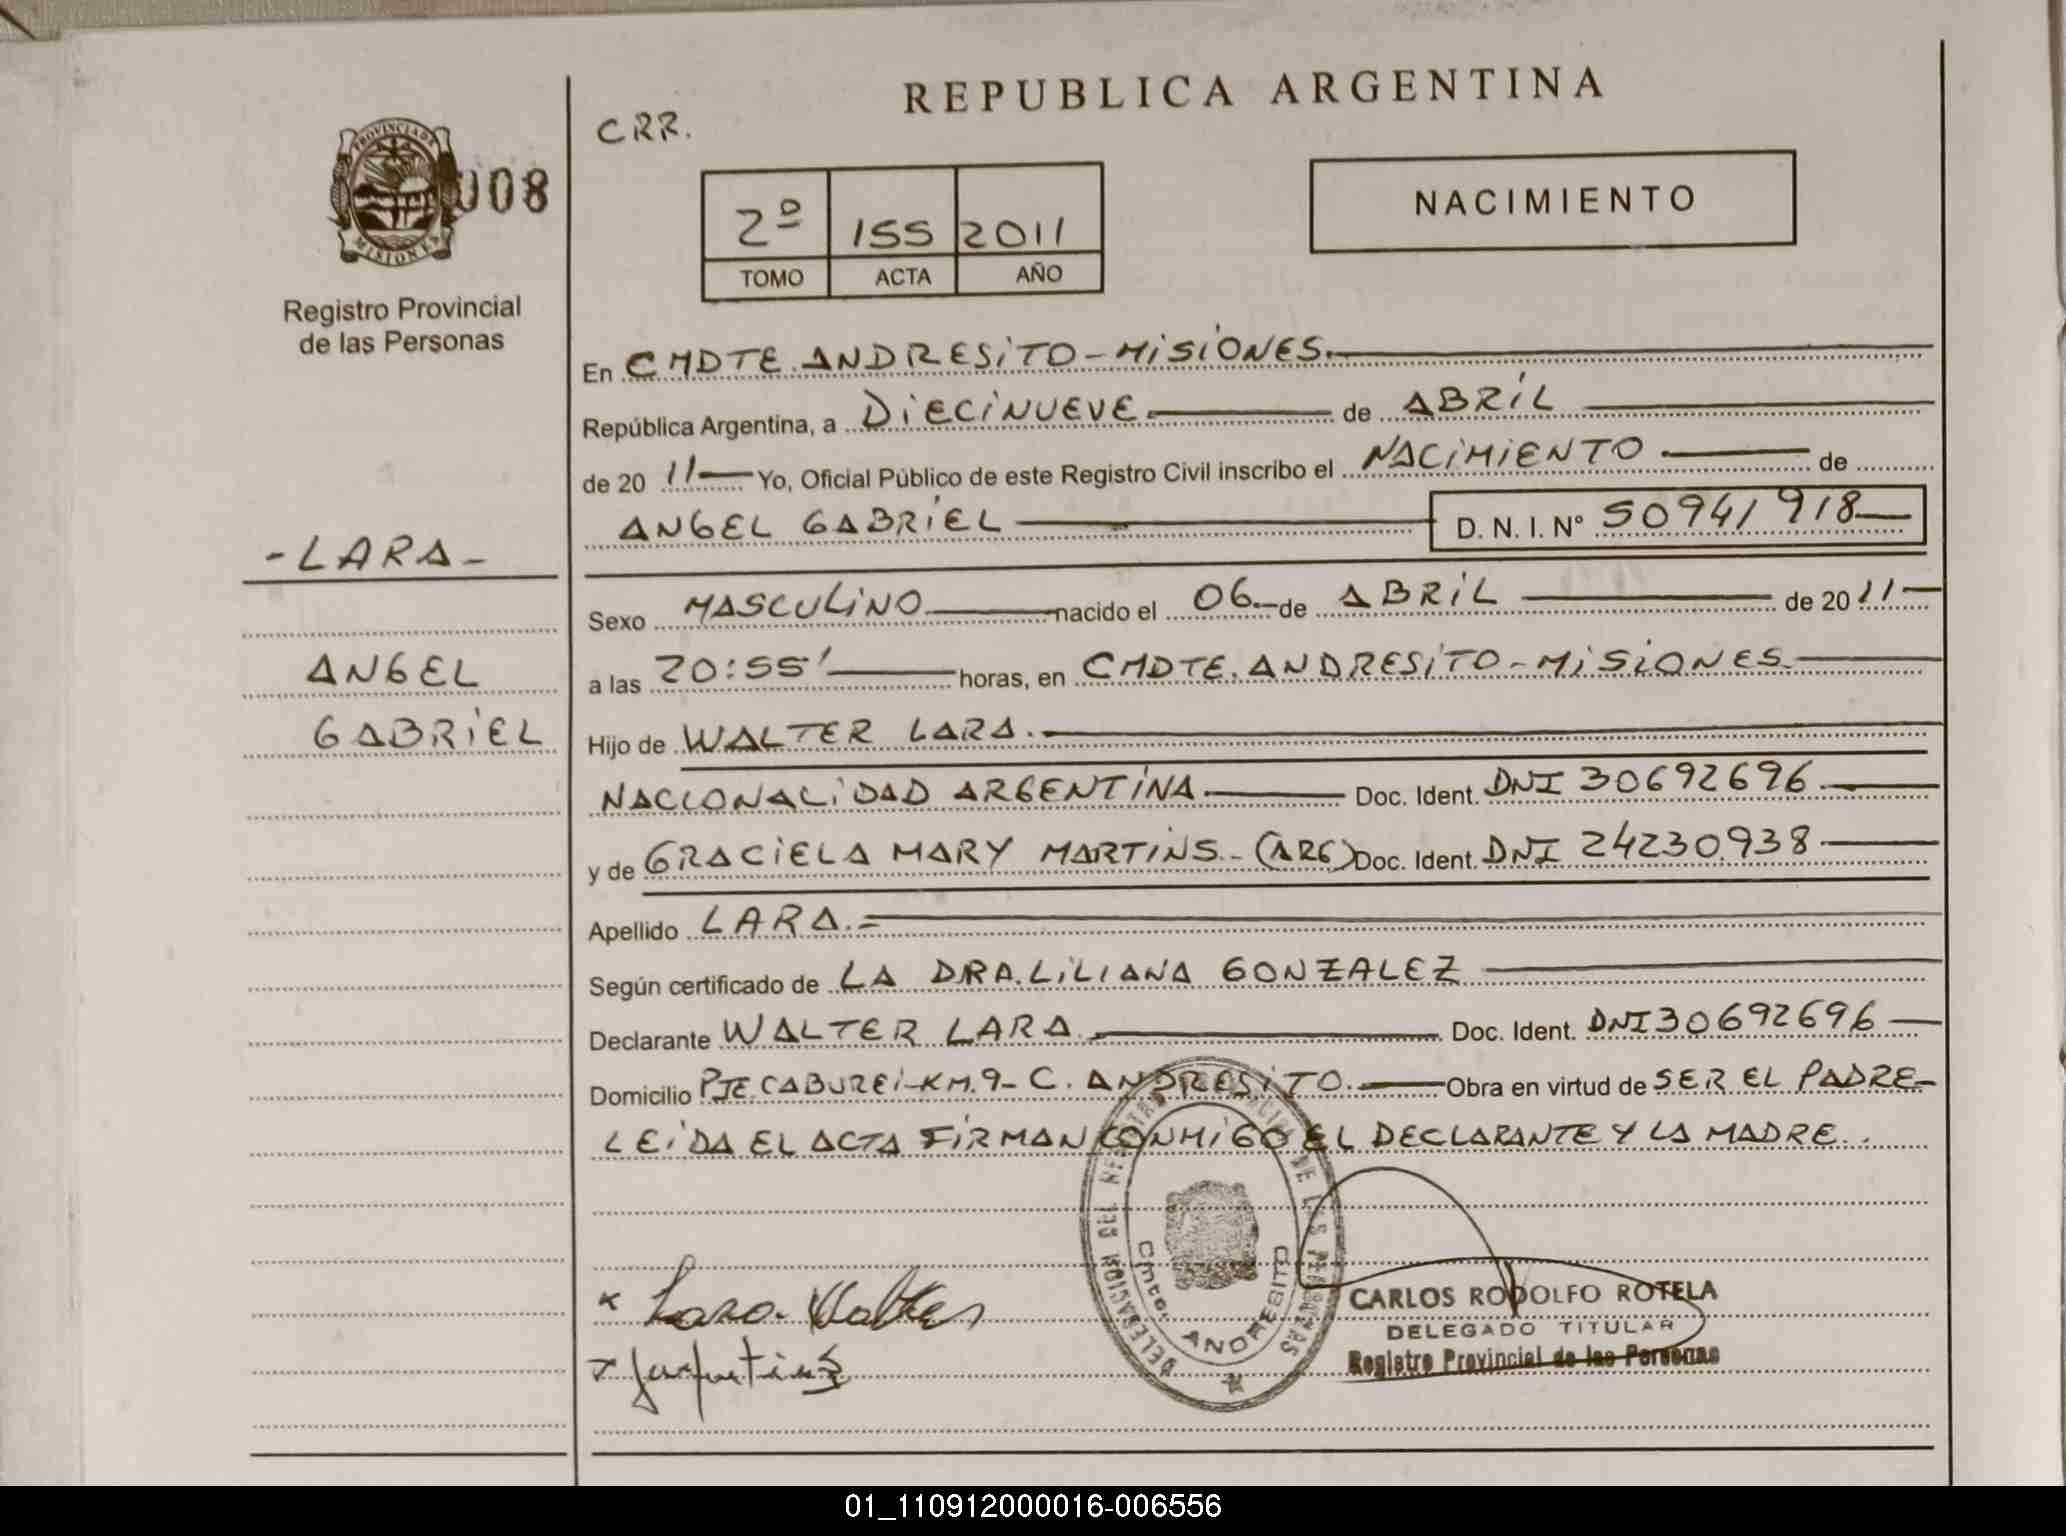 REPUBLICA ARGENTINA
CRR.
PROVINCIA DE
MISIONES
008
Registro Provincial
de las Personas
2º 155 2011
TOMO ACTA AÑO
NACIMIENTO
En CMDTE. ANDRESITO - MISIONES.
República Argentina, a DIECINUEVE de ABRIL
de 20 11 Yo, Oficial Público de este Registro Civil inscribo el NACIMIENTO de
ANGEL GABRIEL D. N. I. Nº 50941918
- LARA -
ANGEL
GABRIEL
Sexo MASCULINO nacido el 06 de ABRIL de 20 11
a las 20:55' horas, en CMDTE. ANDRESITO - MISIONES.
Hijo de WALTER LARA.
NACIONALIDAD ARGENTINA Doc. Ident. DNI 30692696
y de GRACIELA MARY MARTINS. - (ARG) Doc. Ident. DNI 24230938
Apellido LARA. =
Según certificado de LA DRA. LILIANA GONZALEZ
Declarante WALTER LARA Doc. Ident. DNI 30692696
Domicilio PJE CABUREI - KM. 9 - C. ANDRESITO. Obra en virtud de SER EL PADRE -
LEIDA EL ACTA FIRMAN CONMIGO EL DECLARANTE Y LA MADRE.
Lara Walter
DELEGACION DEL REGISTRO PROVINCIAL DE LAS PERSONAS
Cmte. ANDRESITO
CARLOS RODOLFO ROTELA
DELEGADO TITULAR
Registro Provincial de las Personas
01_110912000016-006556